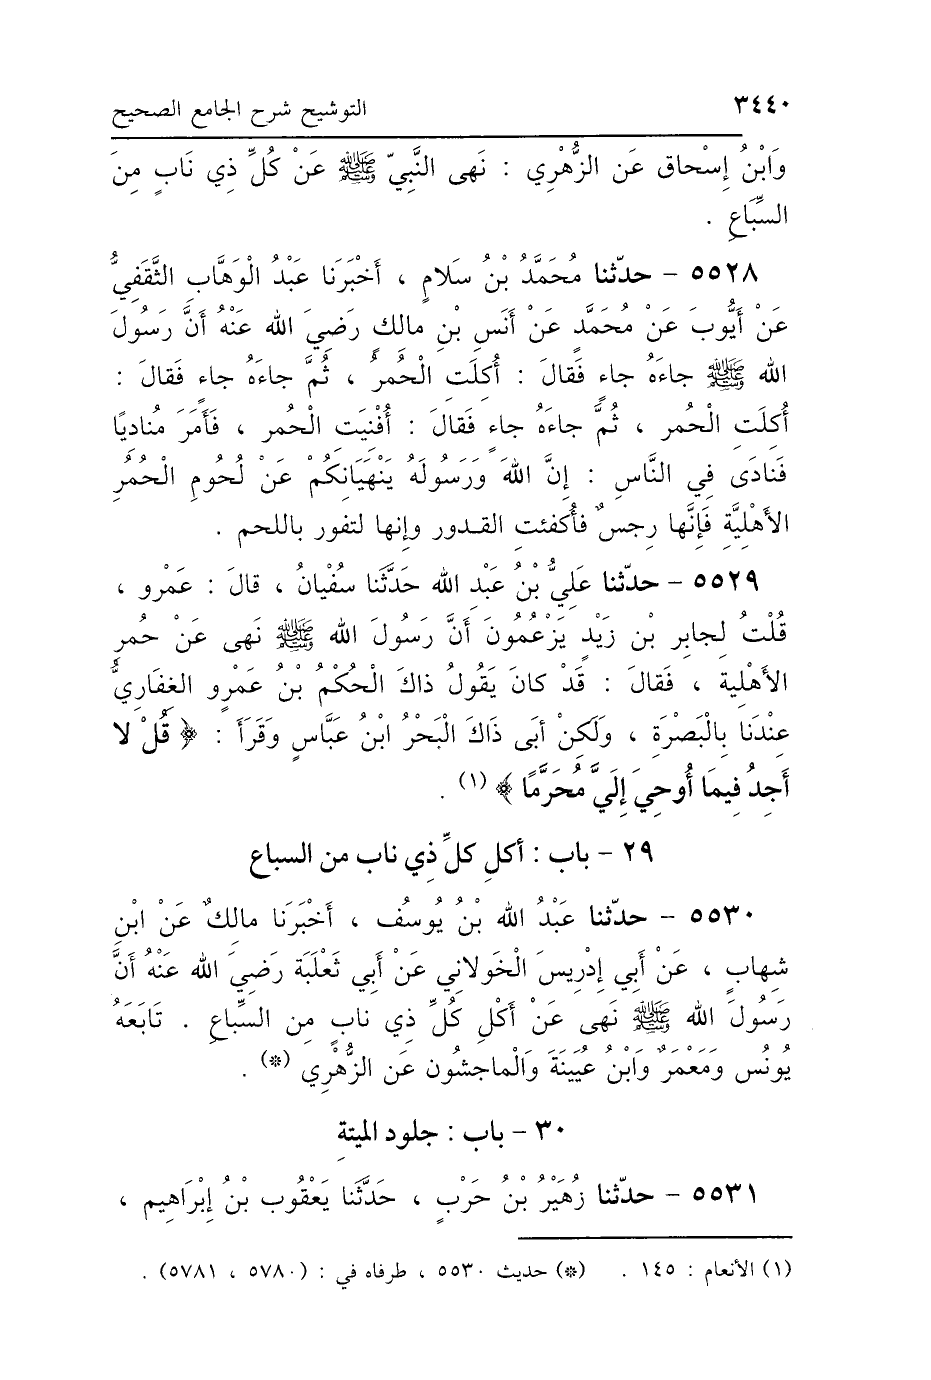 ٣٤٤٠ التوشيح شرح الجامع الصحيح
وَابْنُ إِسْحاق عَن الزُّهْرِي : نَهى النَّبِيّ ﷺ عَنْ كُلِّ ذِي نَابٍ مِنَ
السِّبَاعِ .
٥٥٢٨ - حدّثنا مُحَمَّدُ بْنُ سَلَامٍ ، أَخْبَرَنَا عَبْدُ الْوَهَّابِ الثَّقَفِيُّ
عَنْ أَيُّوبَ عَنْ مُحَمَّدٍ عَنْ أَنَسِ بْنِ مالكٍ رَضِيَ الله عَنْهُ أَنَّ رَسُولَ
الله ﷺ جاءَهُ جاءٍ فَقالَ : أُكِلَتِ الْحُمُرُ ، ثُمَّ جاءَهُ جاءٍ فَقالَ :
أُكلَتِ الْحُمر ، ثُمَّ جاءَهُ جاءٍ فَقالَ : أُفْنِيَتِ الْحُمر ، فَأَمَرَ مُناديًا
فَنادَى فِي النَّاسِ : إِنَّ اللهَ وَرَسُولَهُ يَنْهَيَانِكُمْ عَنْ لُحُومِ الْحُمُرِ
الأَهْلِيَّةِ فَإِنَّها رجسٌ فأُكفئت القدور وإنها لتفور باللحم .
٥٥٢٩ - حدّثنا عَلِيُّ بْنُ عَبْدِ الله حَدَّثَنا سفْيانُ ، قالَ : عَمْرو ،
قُلْتُ لجابرِ بْن زَيْدٍ يَزْعُمُونَ أَنَّ رَسُولَ الله ﷺ نَهى عَنْ حُمرِ
الأَهْلية ، فَقالَ : قَدْ كانَ يَقُولُ ذاكَ الْحُكْمُ بْنُ عَمْرٍو الغِفَارِيُّ
عِنْدَنَا بِالْبَصْرَةِ ، وَلَكِنْ أبَى ذَاكَ الْبَحْرُ ابْنُ عبَّاسٍ وَقَرَأَ : ﴿ قُلْ لا
أَجِدُ فِيمَا أُوحِيَ إِلَيَّ مُحَرَّمًا ﴾ (١) .
٢٩ - باب : أكلِ كلِّ ذِي ناب من السباع
٥٥٣٠ - حدّثنا عَبْدُ الله بْنُ يُوسُف ، أَخْبَرَنا مالكٌ عَنِ ابْنِ
شِهابٍ ، عَن أَبِي إدْرِيسَ الْخَولانِي عَنْ أبي ثَعْلَبَة رَضِيَ الله عَنْهُ أَنَّ
رَسُولَ الله ﷺ نَهى عَنْ أَكْلِ كُلِّ ذِي نابٍ مِن السِّباعِ . تَابَعَهُ
يُونُس وَمَعْمَرٌ وَابْنُ عُيَيْنَةَ وَالْماجشُون عَن الزُّهْرِي (*) .
٣٠ - باب : جلودِ الميتة
٥٥٣١ - حدّثنا زُهَيْرُ بْنُ حَرْبٍ ، حَدَّثَنا يَعْقُوب بْنُ إِبْرَاهِيم ،
(١) الأنعام : ١٤٥ . (*) حديث ٥٥٣٠ ، طرفاه في : (٥٧٨٠ ، ٥٧٨١) .